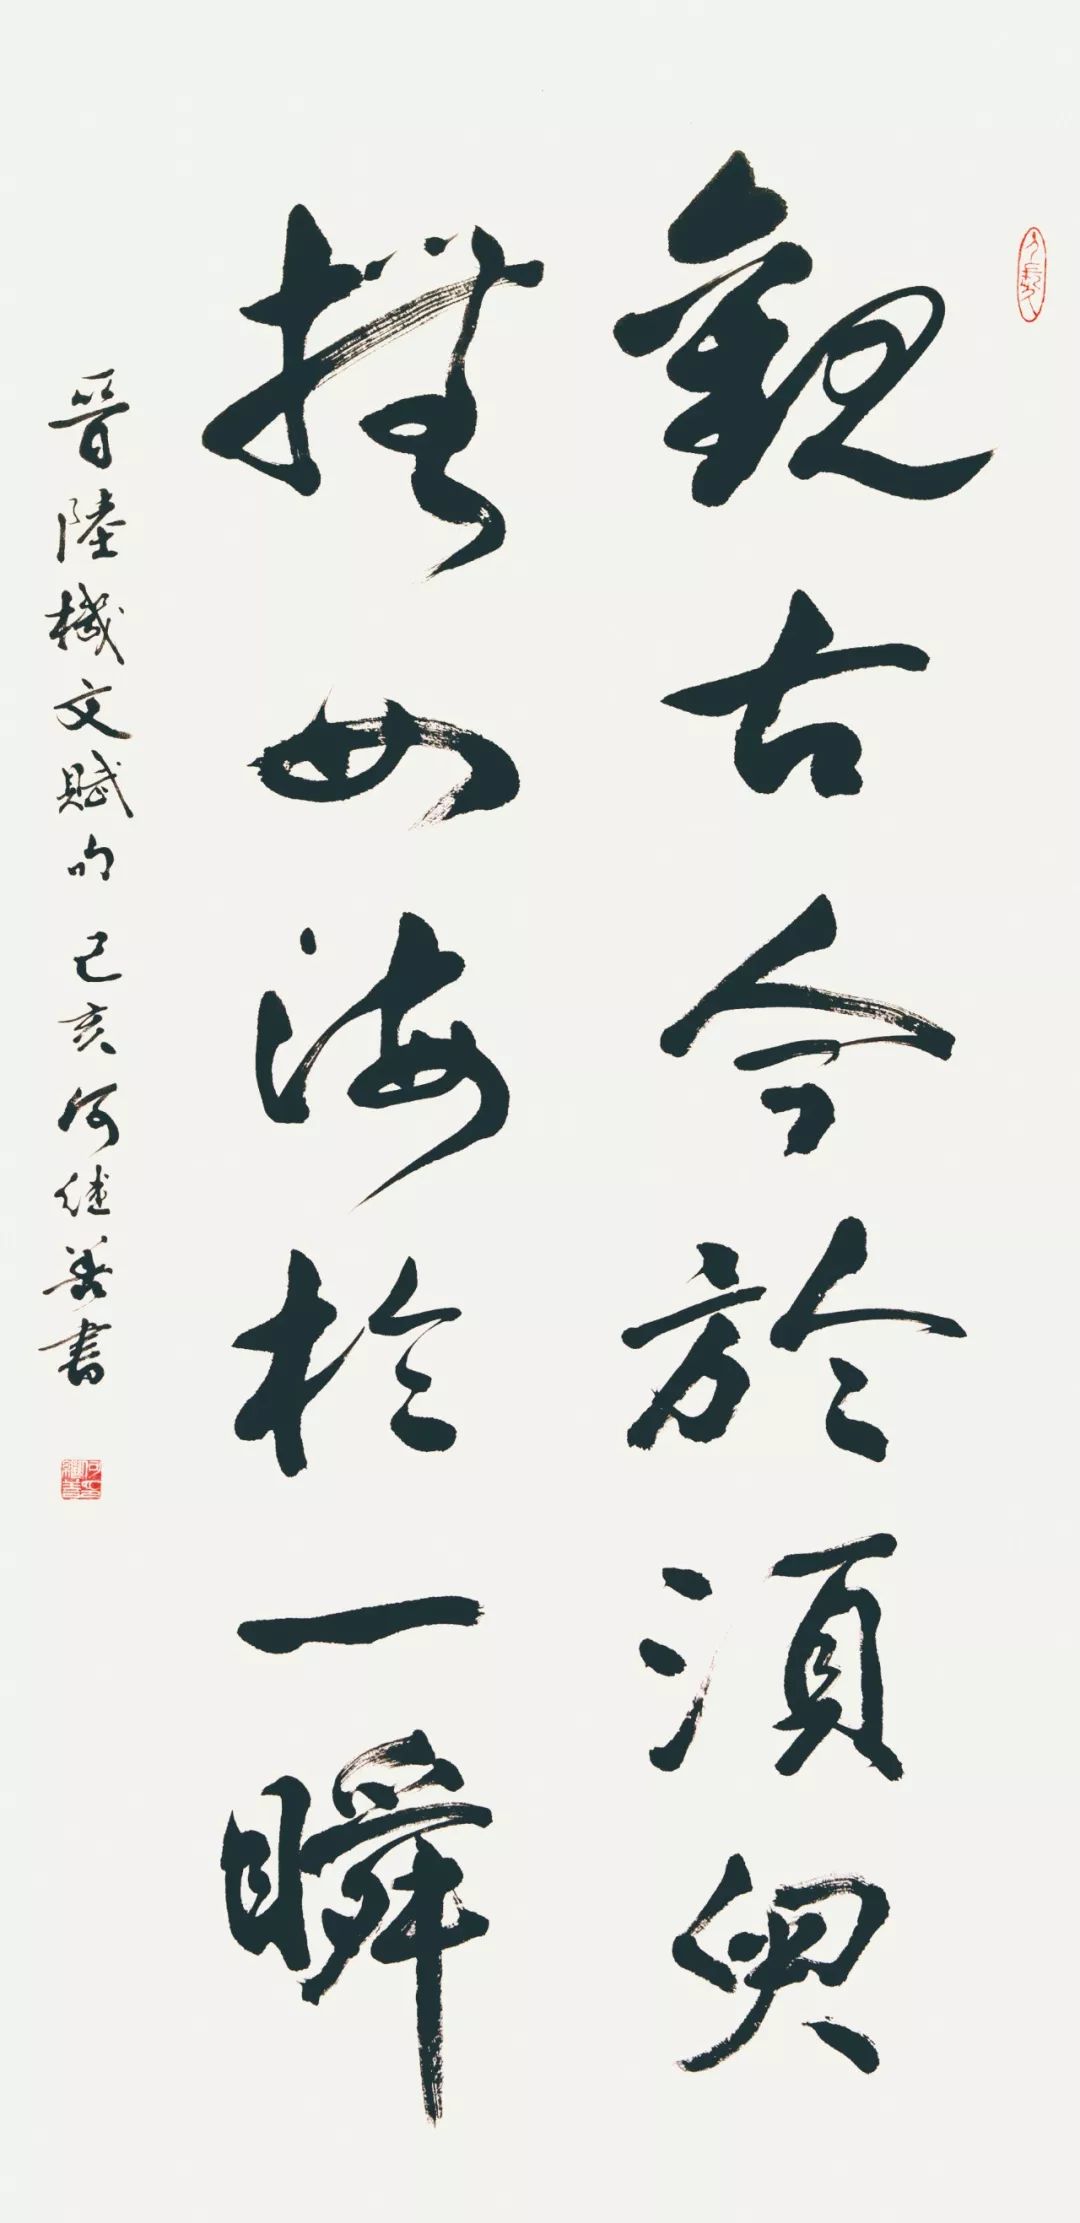 觀古今於須臾
撫四海於一瞬
晋陸機文賦句 己亥何继善書